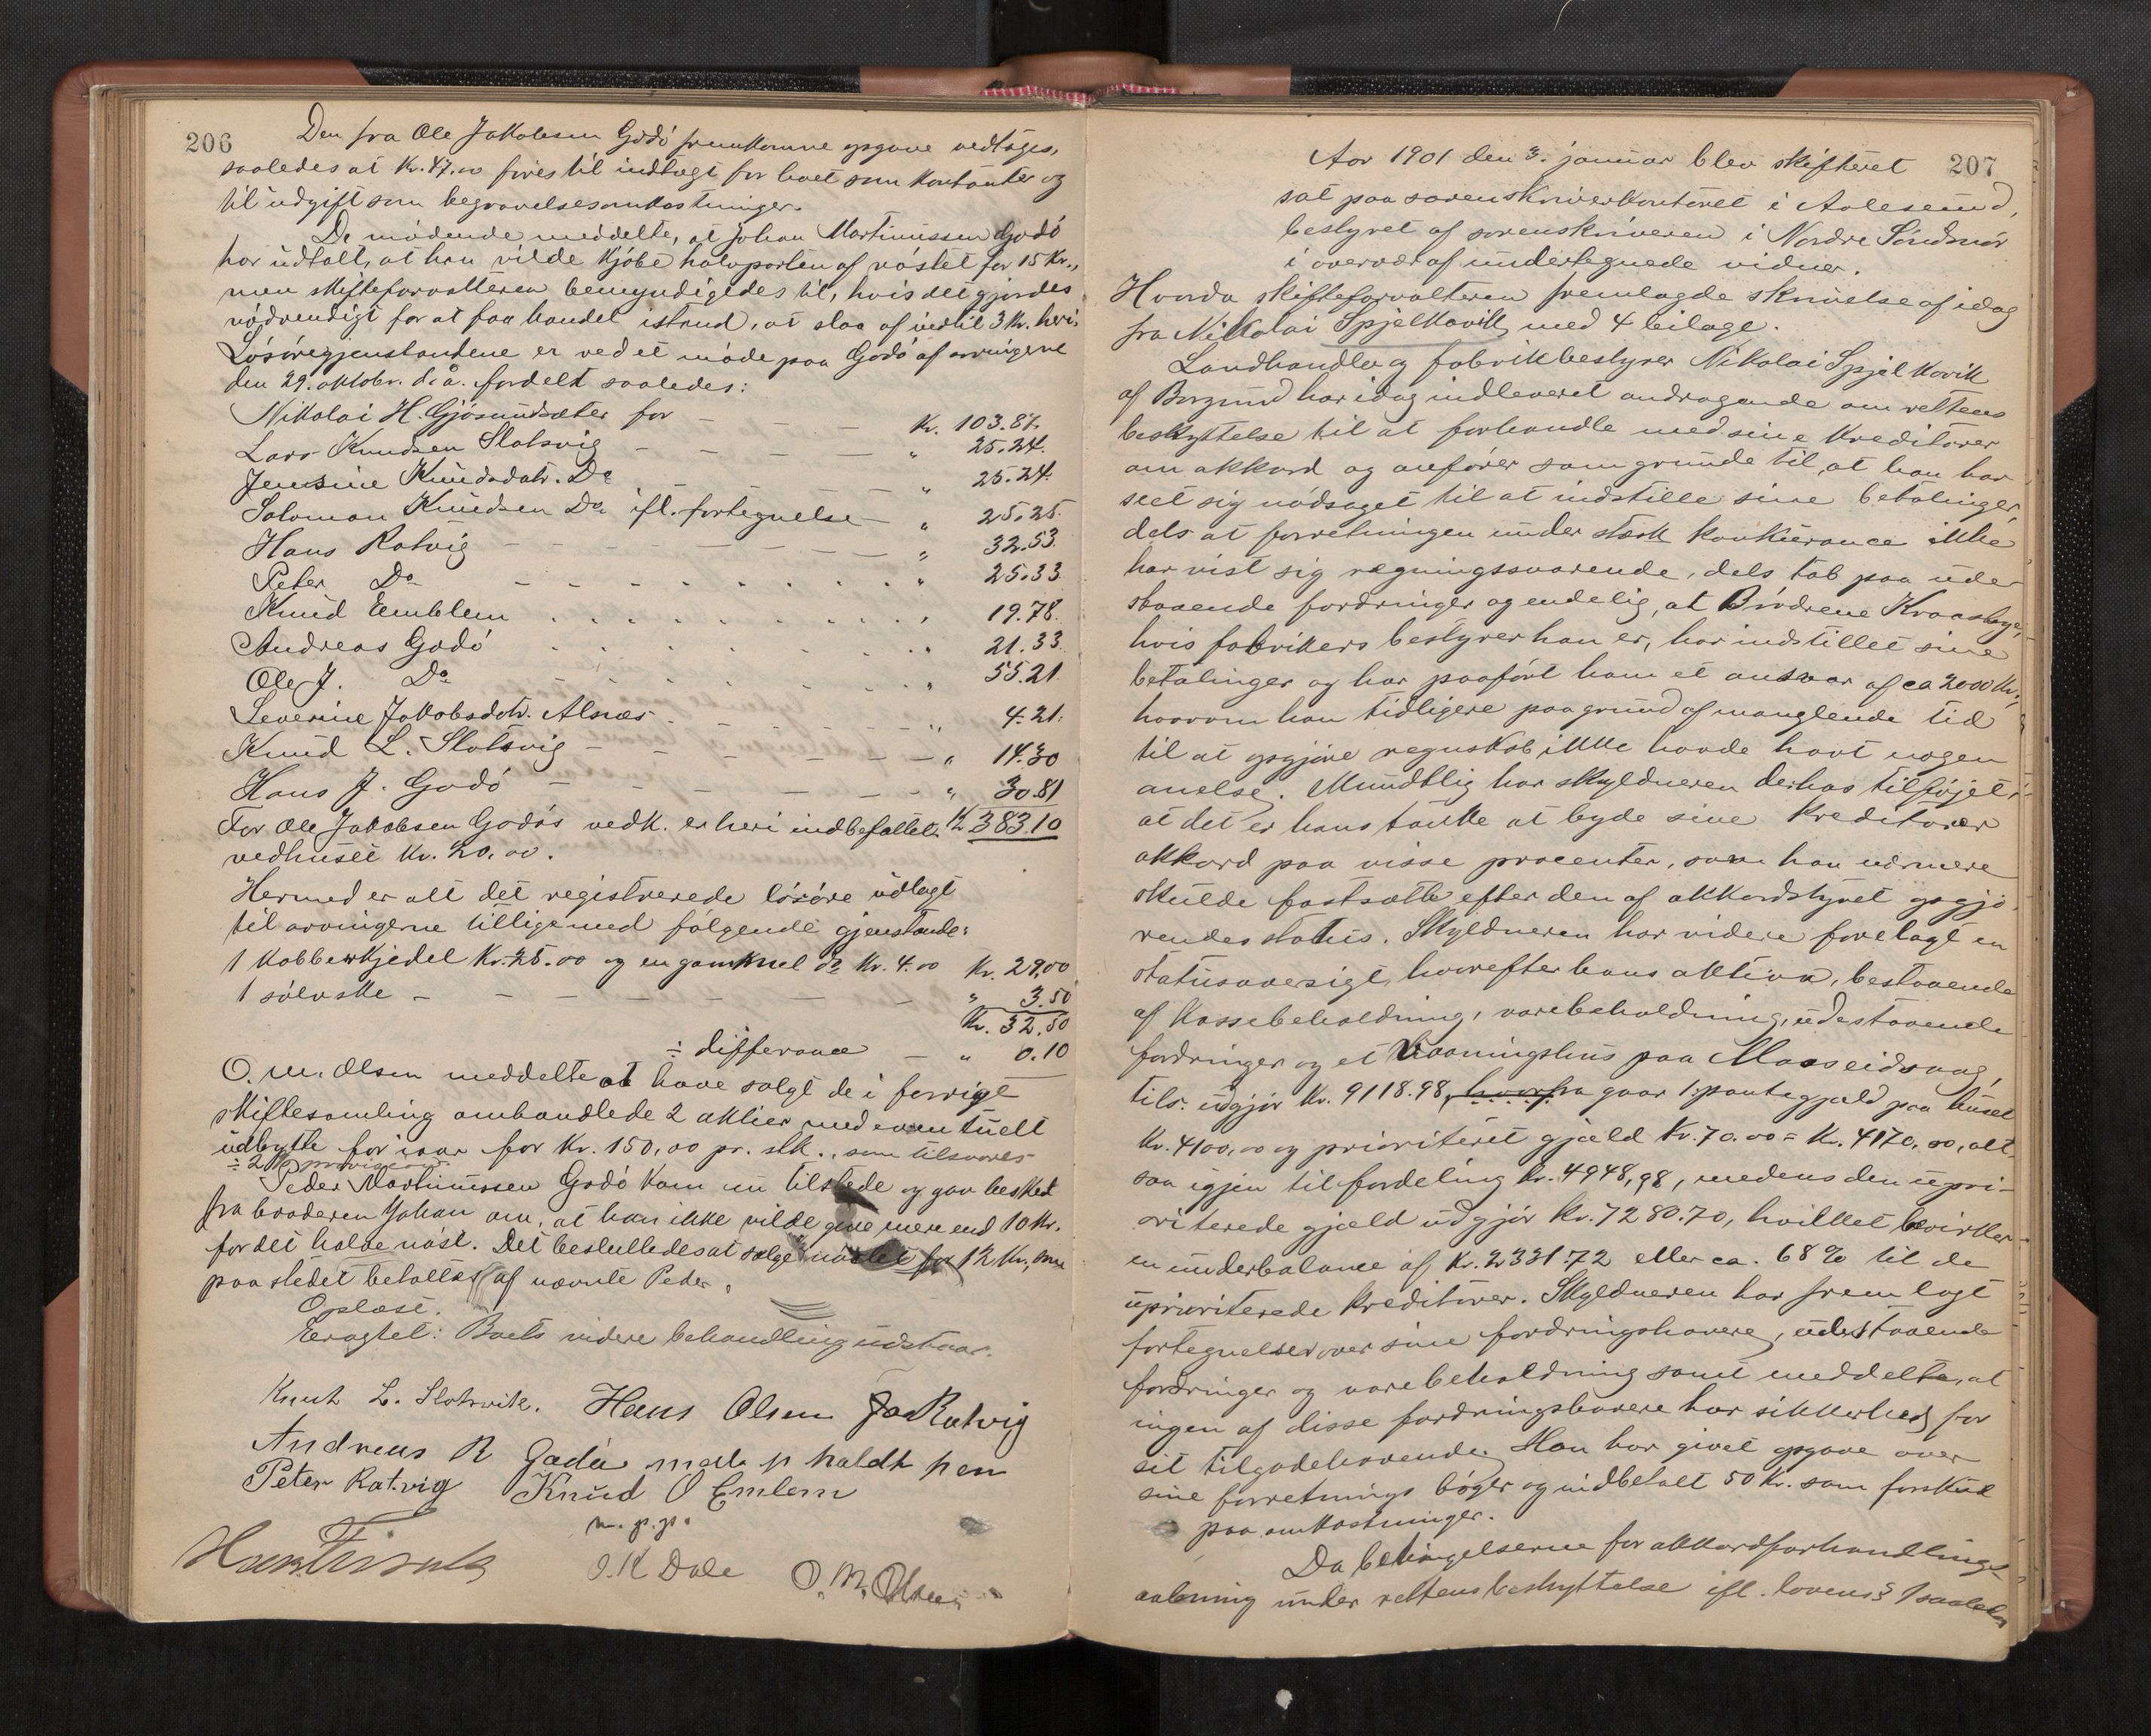 206
Den fra Ole Jakobsen Godö fremkomne opgave vedtoges,
saaledes at Kr. 47.00 föres til indtægt for boet som kontanter og
til udgift som begravelsesomkostninger.
De mödende meddelte, at Johan Martinussen Godö
har udtalt, at han vilde kjöbe halvparten af nöstet for 15 Kr.,
men skifteforvalteren bemyndigedes til, hvis det gjordes
nödvendigt for at faa handel istand, at slaa af indtil 3 Kr. heri.
Lösöregjenstandene er ved et möde paa Godö af arvingerne
den 29. oktobr. d. å. fordelt saaledes:
Nikolai H. Gjösundsæter for - - - Kr. 103.87.
Lars Knudsen Slotsvig - - - - " 25.24.
Jensine Knudsdatr. Do - - - " 25.24.
Solomon Knudsen Do ifl. fortegnelse - " 25.25.
Hans Rotvig - - - - - - - - " 32.53.
Peter Do - . . . . . . . . " 25.33
Knud Emblem . . . . . . . . , 19.78.
Andreas Godö . . . . . . . . 21.33
Ole J. Do . . . . . . . . , 55.21
Severine Jakobsdtr. Alnæs . - - - - " 4.21.
Knud L. Slotsvig - - - - - - - " 14.30
Hans J. Godö - - - - - - - " 30.81
For Ole Jakobsen Godös vedk. er heri indbefattet Kr 383.10
vedhuset Kr. 20.00.
Hermed er alt det registrerede lösöre udlagt
til arvingerne tilligemed fölgende gjenstande:
1 Kobberkjedel Kr. 25.00 og en gammel do Kr. 4.00 Kr. 29.00
1 sölvske - - - - - - - " 3.50
Kr. 32.50
÷ differance - " 0.10
O. M. Olsen meddelte at have solgt de i forrige
skiftesamling omhandlede 2 aktier med eventuelt
udbytte for iaar for Kr. 150,00 pr. stk., som tilsvares
÷ 2 % provision.
Peder Martinussen Godö kom nu tilstede og gav besked
fra broderen Johan om, at han ikke vilde give mere end 10 Kr.
for det halve nöst. Det besluttedes at sælge nöstet for 12 Kr., som
paa stedet betaltes af nævnte Peder.
Oplæst.
Eragtet: Boets videre behandling udstaar.
Knut L. Slotsvik. Hans Olsen Rotvig
Andreas R Godö med p haldt pen
Peter Ratvig Knud O Emlem
m. p. p.
O. K Dale O. M. Olsen
207
Aar 1901 den 3. januar blev skifteret
sat paa sorenskriverkontoret i Aalesund,
bestyret af sorenskriveren i Nordre Söndmör
i overvær af undertegnede vidner.
Hvorda skifteforvalteren fremlagde skrivelse af idag
fra Nikolai Spjelkavik med 4 bilage.
Landhandler og fabrikbestyrer Nikolai Spjelkavik
af Borgund har idag indleveret andragende om rettens
beskyttelse til at forhandle med sine kreditorer
om akkord og anförer som grunde til, at han har
seet sig nödsaget til at indstille sine betalinger,
dels at forretningen under stærk konkurance ikke
har vist sig regningssvarende, dels tab paa ude-
staaende fordringer og endelig, at Brödrene Kraastage,
hvis fabrikers bestyrer han er, har indstillet sine
betalinger og har paafört ham et ansvar af ca 2000 Kr.,
hvorom han tidligere paa grund af manglende tid
til at opgjöre regnskab ikke havde havt nogen
anelse. Mundtlig har skyldneren derhos tilföjet,
at det er hans tanke at byde sine kreditorer
akkord paa visse procenter, som han nærmere
skulde fastsætte efter den af akkordstyret opgjö-
rendes status. Skyldneren har videre forelagt en
statusoversigt, hvorefter hans aktiva, bestaaende
af kassebeholdning, varebeholdning, udestaaende
fordringer og et vaaningshus paa Masseidvaag,
tils. udgjör Kr. 9118.98, hvorfra gaar 1. pantegjæld paa huset
Kr. 4100,00 og prioriteret gjæld Kr. 70.00 = Kr. 4170.00, alt-
saa igjen til fordeling Kr. 4948,98, medens den upri-
oriterede gjæld udgjör Kr. 7280.70, hvilket bevirker
en underbalance af Kr. 2331.72 eller ca. 68 % til de
uprioriterede kreditorer. Skyldneren har fremlagt
fortegnelser over sine fordringshavere, udestaaende
fordringer og varebeholdning samt meddelte, at
ingen af disse fordringshavere har sikkerhed for
sit tilgodehavende. Han har givet opgave over
sine forretnings böger og indbetalt 50 Kr. som forskud
paa omkostninger.
Da betingelserne for akkordforhandlings
aabning under rettens beskyttelse ifl. lovens § 1 saaledes